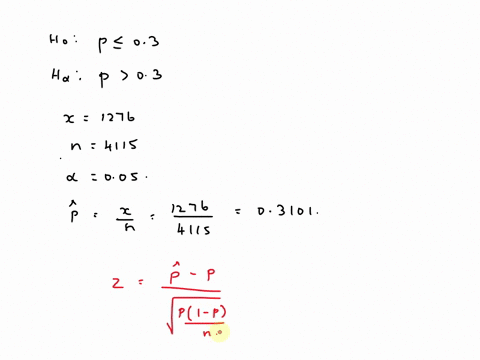 H0: p ≤ 0.3
Ha: p > 0.3
x = 1276
n = 4115
α = 0.05.
p̂ = x/n = 1276/4115 = 0.3101.
z = p̂ - p / √(p(1-p)/n)